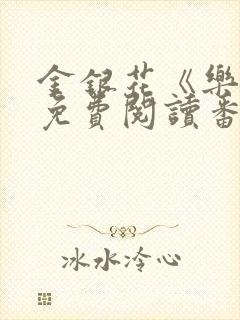 金銀花《樂
免費閱讀番
冰水冷心